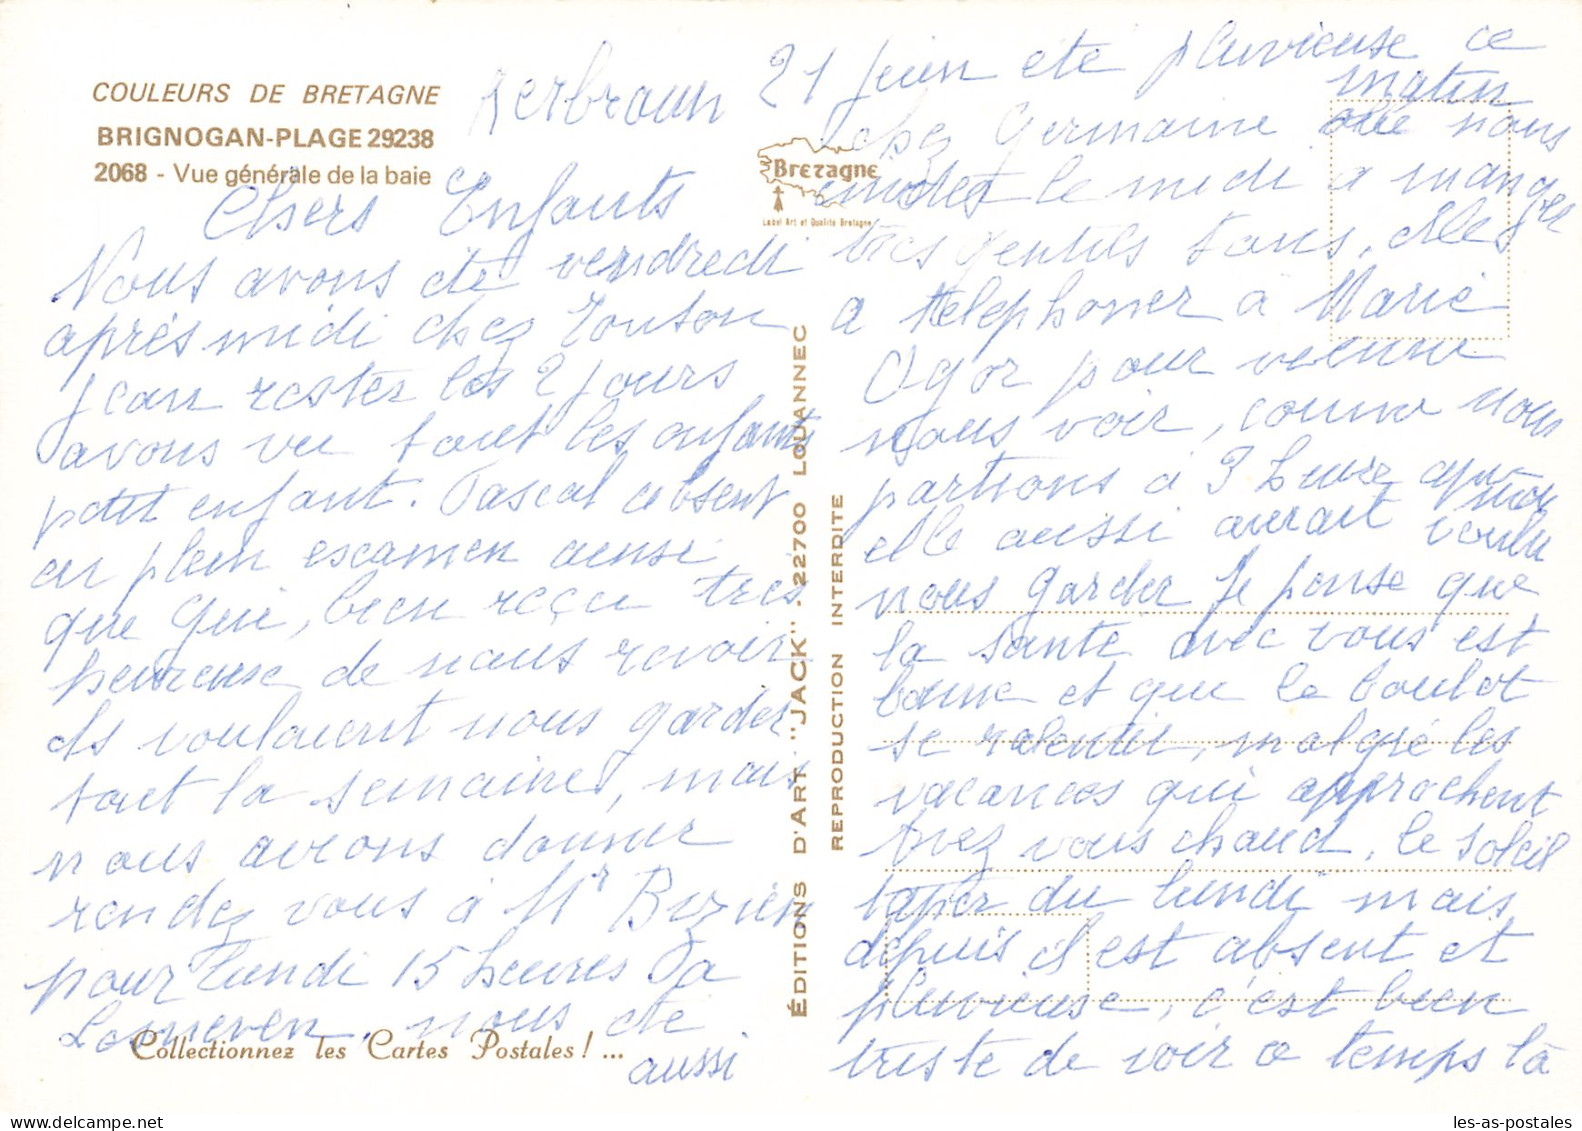 COULEURS DE BRETAGNE
BRIGNOGAN-PLAGE 29238
2068 - Vue générale de la baie
Kerbraun 21 Juin été pluvieuse ce
matin
Chers Enfants
Nous avons été vendredi
après midi chez Tonton
Jean rester les 2 jours
avons vu tout les enfants
petit enfant. Pascal absent
en plein escamen ainsi
que Gui, bien reçu très
heureuse de nous revoir
ils voulaient nous garder
tout la semaine, mais
nous avions donner
rendez vous à Mr Bizien
pour lundi 15 heures
Lesneven, nous été
aussi
Collectionnez les Cartes Postales ! ...
Bretagne
Label Art et Qualité Bretagne
ÉDITIONS D'ART "JACK" - 22700 LOUANNEC
REPRODUCTION INTERDITE
chez Germaine elle nous
invités le midi a manger
très gentils tous, elles
a telephoner à Marie
Ogor pour venir
nous voir, comme nous
partions à 3 heure
elle aussi aurait voulu
nous garder Je pense que
la santé avec vous est
bonne et que le boulot
se ralentit, malgré les
vacances qui approchent
Avez vous chaud, le soleil
taper du lundi mais
depuis il est absent et
pluvieuse, c'est bien
triste de voir ce temps là
les-as-postales